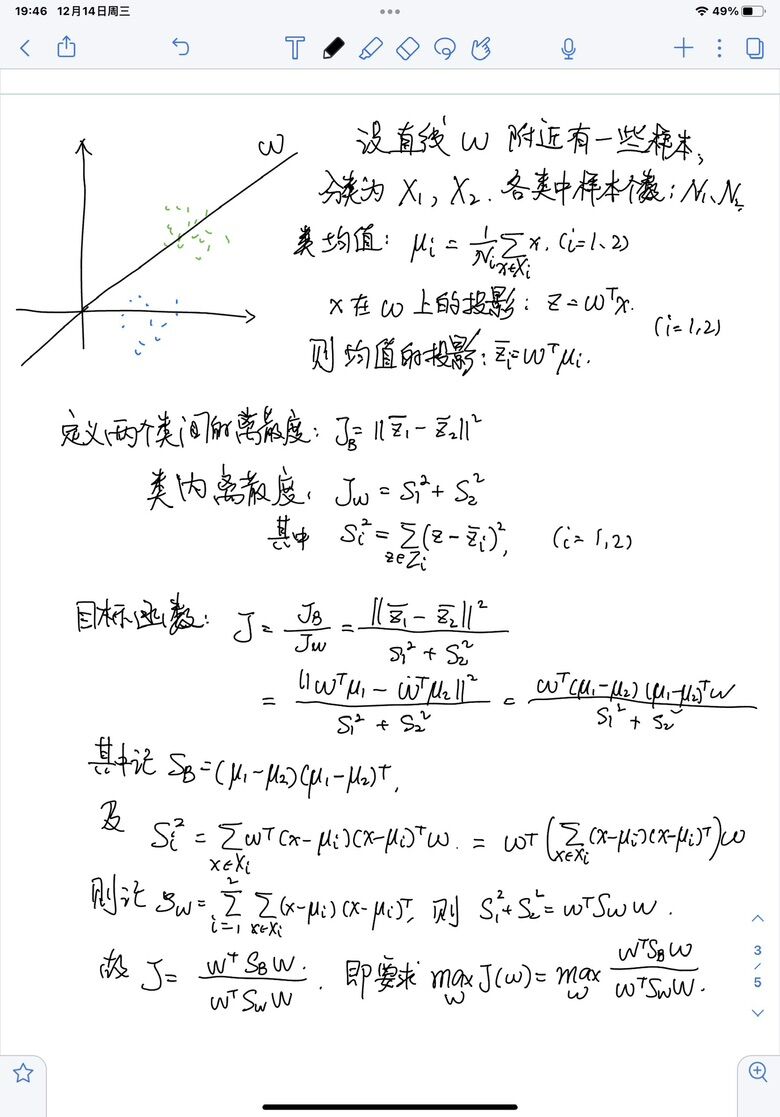 19:46 12月14日周三
49%
T
ω
设直线 ω 附近有一些样本,
分类为 X₁, X₂. 各类中样本个数: N₁、N₂
类均值: μᵢ = 1/Nᵢ ∑_{x∈Xᵢ} x. (i=1,2)
x 在 ω 上的投影: z=ωᵀx.
(i=1,2)
则均值的投影: z̄ᵢ=ωᵀμᵢ.
定义两个类间的离散度: J_B=||z̄₁-z̄₂||²
类内离散度, J_W = S₁²+S₂²
其中 Sᵢ²=∑_{z∈Zᵢ}(z-z̄ᵢ)², (i=1,2)
目标函数: J = J_B/J_W = ||z̄₁-z̄₂||²/(S₁²+S₂²)
= ||ωᵀμ₁-ωᵀμ₂||²/(S₁²+S₂²) = ωᵀ(μ₁-μ₂)(μ₁-μ₂)ᵀω/(S₁²+S₂²)
其中记 S_B=(μ₁-μ₂)(μ₁-μ₂)ᵀ,
及 Sᵢ² = ∑_{x∈Xᵢ}ωᵀ(x-μᵢ)(x-μᵢ)ᵀω. = ωᵀ(∑_{x∈Xᵢ}(x-μᵢ)(x-μᵢ)ᵀ)ω
则记 S_W=∑_{i=1}^{2}∑_{x∈Xᵢ}(x-μᵢ)(x-μᵢ)ᵀ, 则 S₁²+S₂²=ωᵀS_Wω.
故 J= ωᵀS_Bω/ωᵀS_Wω. 即要求 max_ω J(ω)=max_ω ωᵀS_Bω/ωᵀS_Wω.
3
/
5